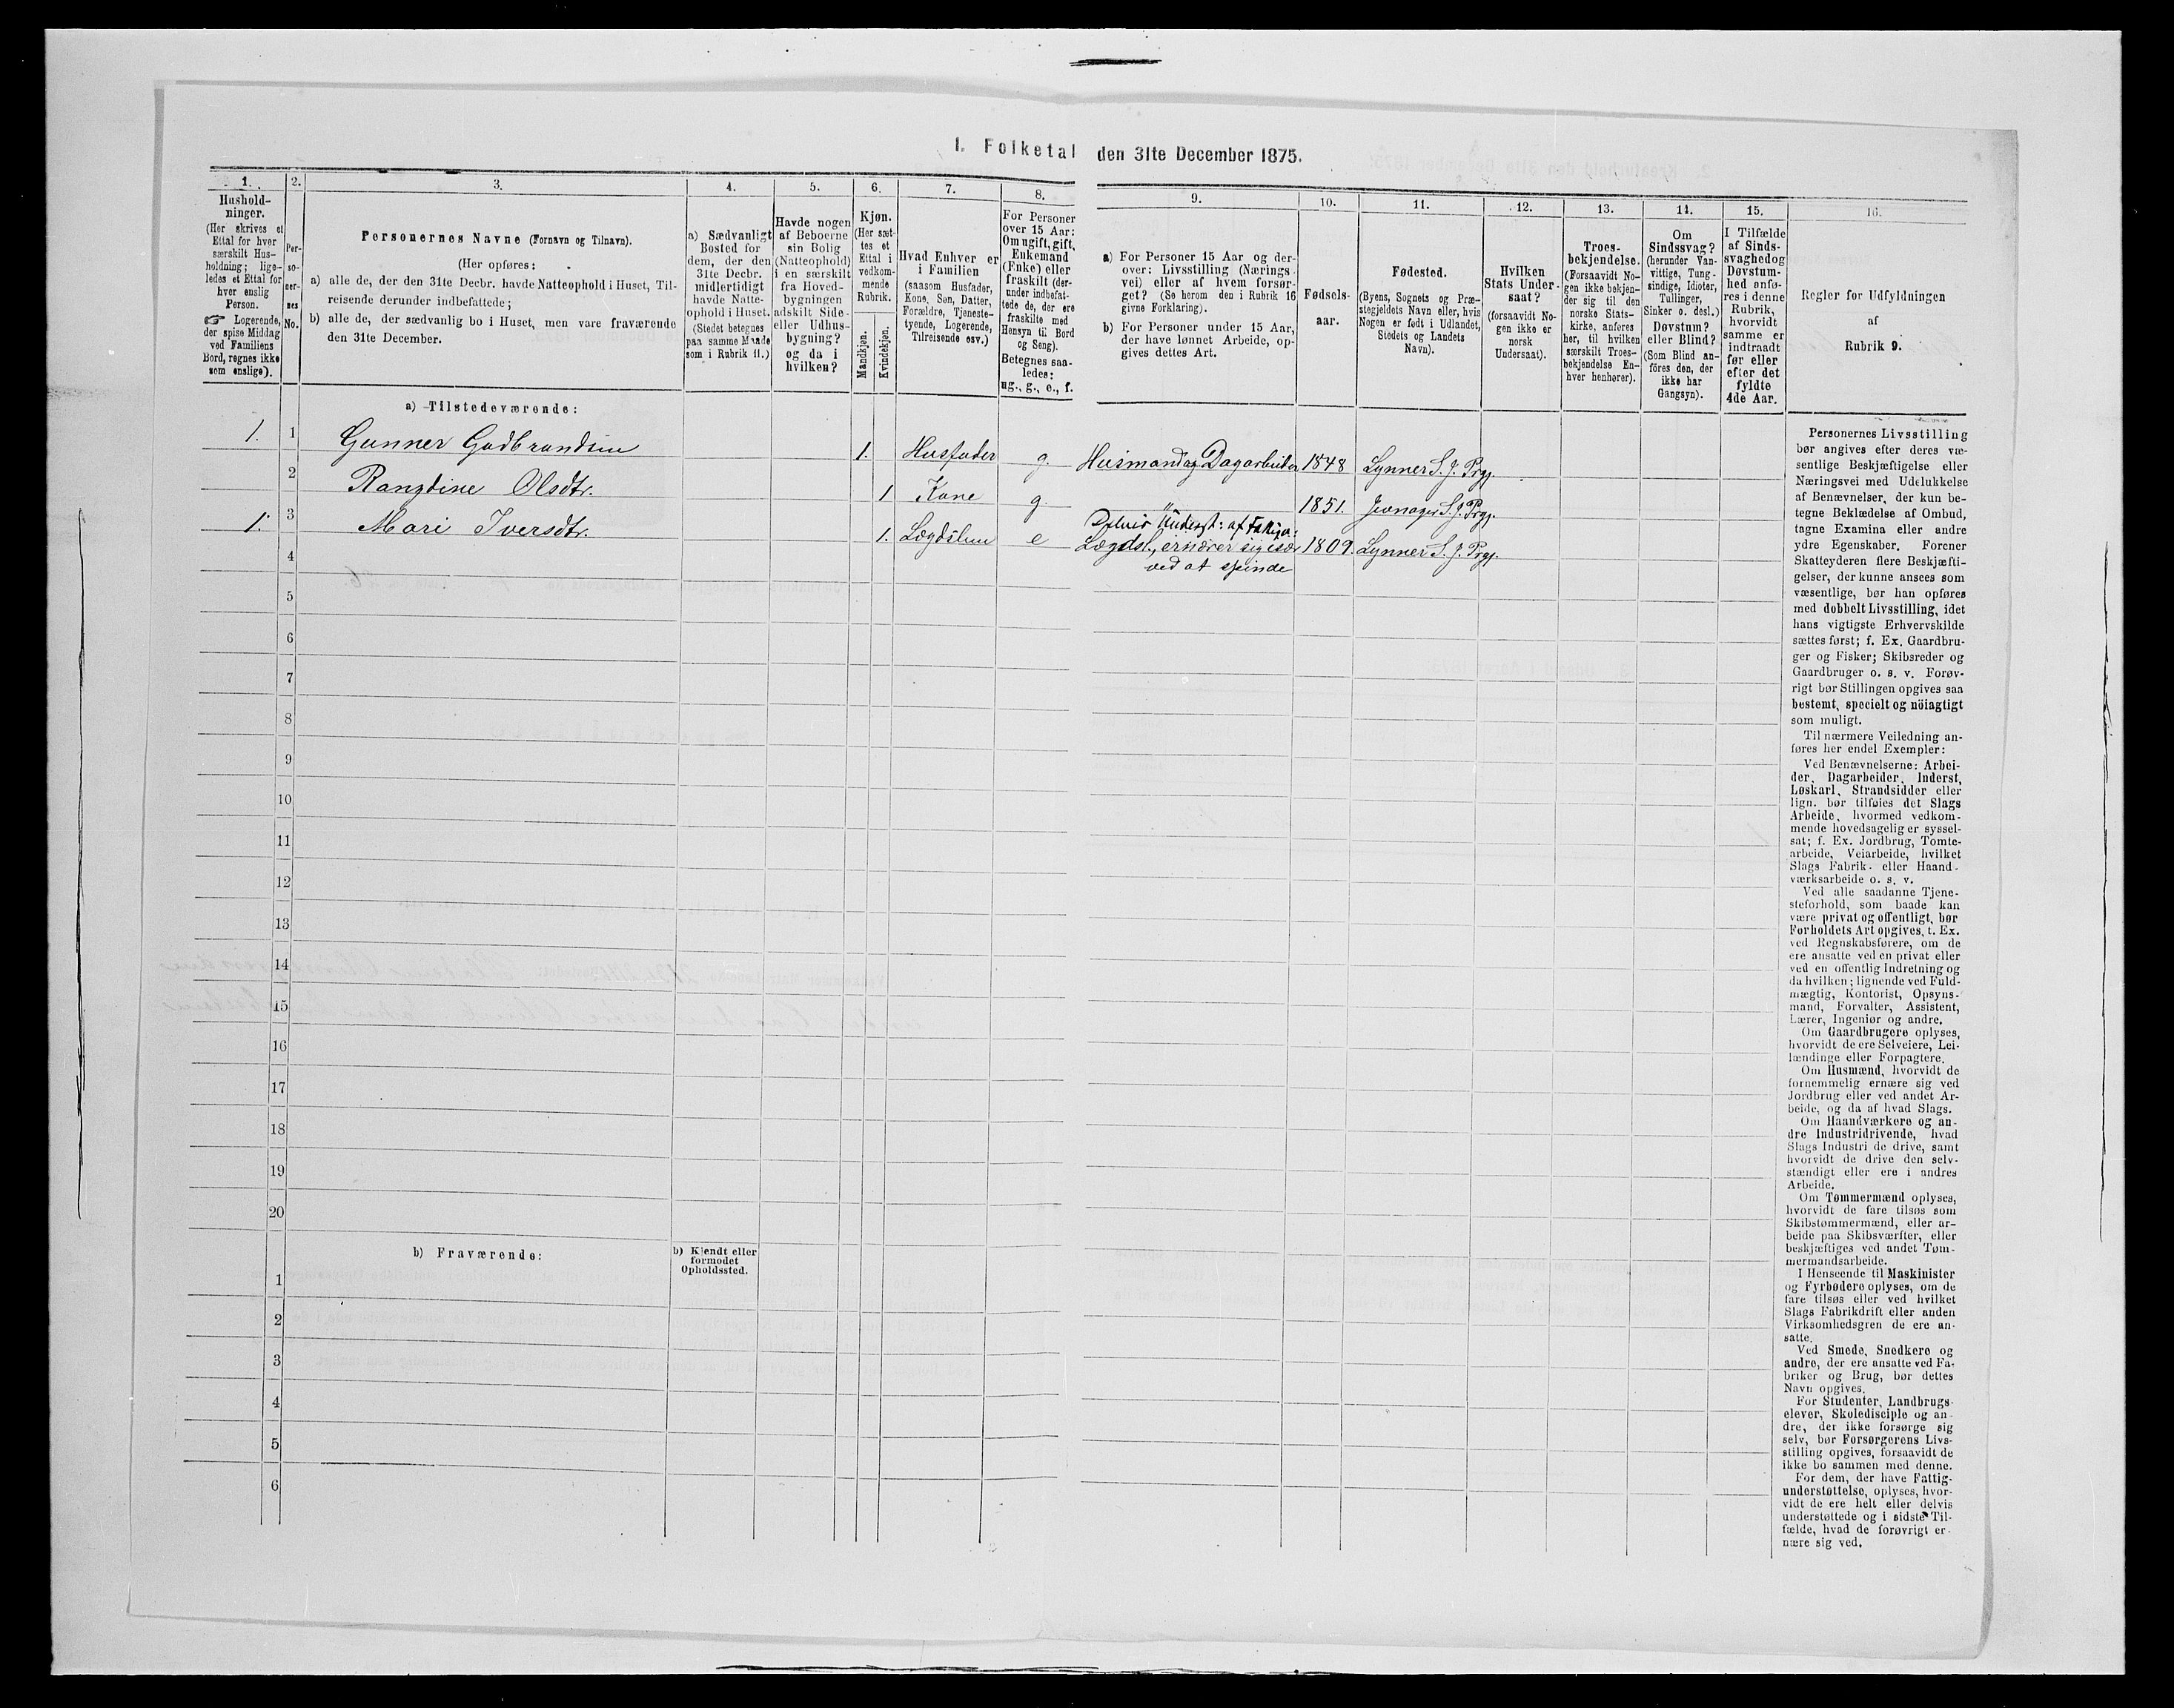 1. Folketal den 31te December 1875.
1.
Hushold-
ninger.
(Her skrives et
Ettal for hver
særskilt Hus-
holdning; lige-
ledes et Ettal for
hver enslig
Person.
☞ Logerende,
der spise Middag
ved Familiens
Bord, regnes ikke
som enslige).
2.
Per-
so-
ner-
nes
No.
3.
Personernes Navne (Fornavn og Tilnavn).
(Her opføres:
a) alle de, der den 31te Decbr. havde Natteophold i Huset, Til-
reisende derunder indbefattede;
b) alle de, der sædvanlig bo i Huset, men vare fraværende
den 31te December.
4.
a) Sædvanligt
Bosted for
dem, der den
31te Decbr.
midlertidigt
havde Natte-
ophold i Huset.
(Stedet betegnes
paa samme Maade
som i Rubrik 11.)
5.
Havde nogen
af Beboerne
sin Bolig
(Natteophold)
i en særskilt
fra Hoved-
bygningen
adskilt Side-
eller Udhus-
bygning?
og da i
hvilken?
6.
Kjøn.
(Her sæt-
tes et
Ettal i
vedkom-
mende
Rubrik.
Mandkjøn.
Kvindekjøn.
7.
Hvad Enhver er
i Familien
(saasom Husfader,
Kone, Søn, Datter,
Forældre, Tjeneste-
tyende, Logerende,
Tilreisende osv.)
8.
For Personer
over 15 Aar:
Om ugift, gift,
Enkemand
(Enke) eller
fraskilt (der-
under indbefat-
tede de, der ere
fraskilte med
Hensyn til Bord
og Seng).
Betegnes saa-
ledes:
ug., g., e., f.
9.
a) For Personer 15 Aar og der-
over: Livsstilling (Nærings-
vei) eller af hvem forsør-
get? (Se herom den i Rubrik 16
givne Forklaring).
b) For Personer under 15 Aar,
der have lønnet Arbeide, op-
gives dettes Art.
10.
Fødsels-
aar.
11.
Fødested.
(Byens, Sognets og Præ-
stegjeldets Navn eller, hvis
Nogen er født i Udlandet,
Stedets og Landets
Navn).
12.
Hvilken
Stats Under-
saat?
(forsaavidt No-
gen ikke er
norsk
Undersaat).
13.
Troes-
bekjendelse.
(Forsaavidt No-
gen ikke bekjen-
der sig til den
norske Stats-
kirke, anføres
her, til hvilken
særskilt Troes-
bekjendelse En-
hver henhører).
14.
Om
Sindssvag?
(herunder Van-
vittige, Tung-
sindige, Idioter,
Tullinger,
Sinker o. desl.)
Døvstum?
eller Blind?
(Som Blind an-
föres den, der
ikke har
Gangsyn).
15.
I Tilfælde
af Sinds-
svaghed og
Døvstum-
hed anfø-
res i denne
Rubrik,
hvorvidt
samme er
indtraadt
før eller
efter det
fyldte
4de Aar.
16.
Regler for Udfyldningen
af
Rubrik 9.
a) Tilstedeværende:
1. 1 Gunner Gudbrandsen 1. Husfader g. Husmand og Dagarbeider 1848 Lynner S. J. Prgj.
2 Rangdine Olsdtr. 1 Kone g. " 1851. Jevnager S. J. Prgj.
Delvis Underst: af Fattigv:
1. 3 Mari Iversdtr. 1. Lægdslem e Lægdsl., ernærer sig især 1809. Lynner S. J. Prgj.
ved at spinde
4
5
6
7
8
9
10
11
12
13
14
15
16
17
18
19
20
b) Fraværende:
b) Kjendt eller
formodet
Opholdssted.
1
2
3
4
5
6
Personernes Livsstilling
bør angives efter deres væ-
sentlige Beskjæftigelse eller
Næringsvei med Udelukkelse
af Benævnelser, der kun be-
tegne Beklædelse af Ombud,
tagne Examina eller andre
ydre Egenskaber. Forener
Skatteyderen flere Beskjæfti-
gelser, der kunne ansees som
væsentlige, bør han opføres
med dobbelt Livsstilling, idet
hans vigtigste Erhvervskilde
sættes først; f. Ex. Gaardbru-
ger og Fisker; Skibsreder og
Gaardbruger o. s. v. Forøv-
rigt bør Stillingen opgives saa
bestemt, specielt og nöiagtigt
som muligt.
Til nærmere Veiledning an-
føres her endel Exempler:
Ved Benævnelserne: Arbei-
der, Dagarbeider, Inderst,
Løskarl, Strandsidder eller
lign. bør tilføies det Slags
Arbeide, hvormed vedkom-
mende hovedsagelig er syssel-
sat; f. Ex. Jordbrug, Tomte-
arbeide, Veiarbeide, hvilket
Slags Fabrik- eller Haand-
værksarbeide o. s. v.
Ved alle saadanne Tjene-
steforhold, som baade kan
være privat og offentligt, bør
Forholdets Art opgives, t. Ex.
ved Regnskabsførere, om de
ere ansatte ved en privat eller
ved en offentlig Indretning og
da hvilken; lignende ved Fuld-
mægtig, Kontorist, Opsyns-
mand, Forvalter, Assistent,
Lærer, Ingeniør og andre.
Om Gaardbrugere oplyses,
hvorvidt de ere Selveiere, Lei-
lændinge eller Forpagtere.
Om Husmænd, hvorvidt de
fornemmelig ernære sig ved
Jordbrug eller ved andet Ar-
beide, og da af hvad Slags.
Om Haandværkere og an-
dre Industridrivende, hvad
Slags Industri de drive, samt
hvorvidt de drive den selv-
stændigt eller ere i andres
Arbeide.
Om Tømmermænd oplyses,
hvorvidt de fare tilsøs som
Skibstømmermænd, eller ar-
beide paa Skibsværfter, eller
beskjæftiges ved andet Tøm-
mermandsarbeide.
I Henseende til Maskinister
og Fyrbødere oplyses, om de
fare tilsøs eller ved hvilket
Slags Fabrikdrift eller anden
Virksomhedsgren de ere an-
satte.
Ved Smede, Snedkere og
andre, der ere ansatte ved Fa-
briker og Brug, bør dettes
Navn opgives.
For Studenter, Landbrugs-
elever, Skoledisciple og an-
dre, der ikke forsørge sig
selv, bør Forsørgerens Livs-
stilling opgives, forsaavidt de
ikke bo sammen med denne.
For dem, der have Fattig-
understøttelse, oplyses, hvor-
vidt de ere helt eller delvis
understøttede og i sidste Til-
fælde, hvad de forøvrigt er-
nære sig ved.